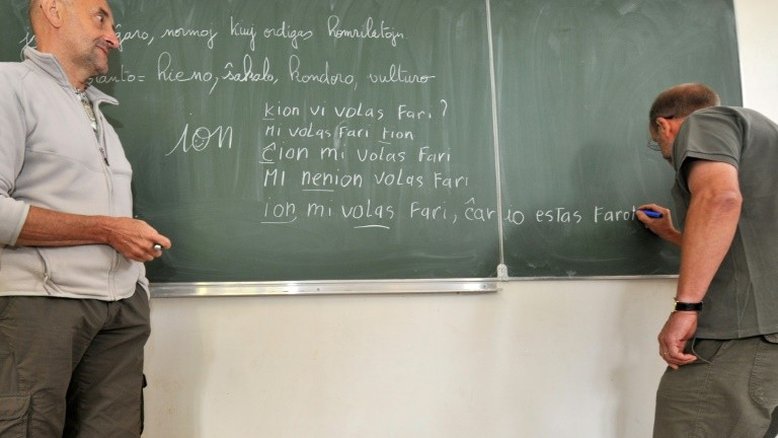 ĵaro, normoj kiuj ordigas homrilatojn
anto = hieno, ŝakalo, kondoro, vulturo
ion
kion vi volas fari?
mi volas fari tion
ĉion mi volas fari
Mi nenion volas fari
ion, mi volas fari, ĉar io estas farot